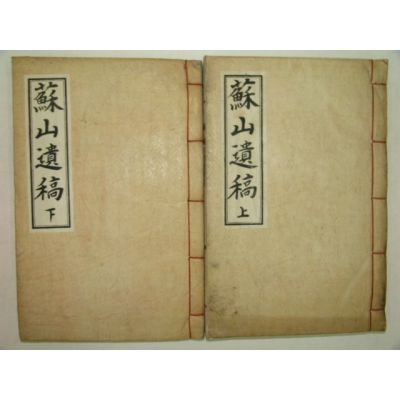 蘇山遺稿
上
蘇山遺稿
下